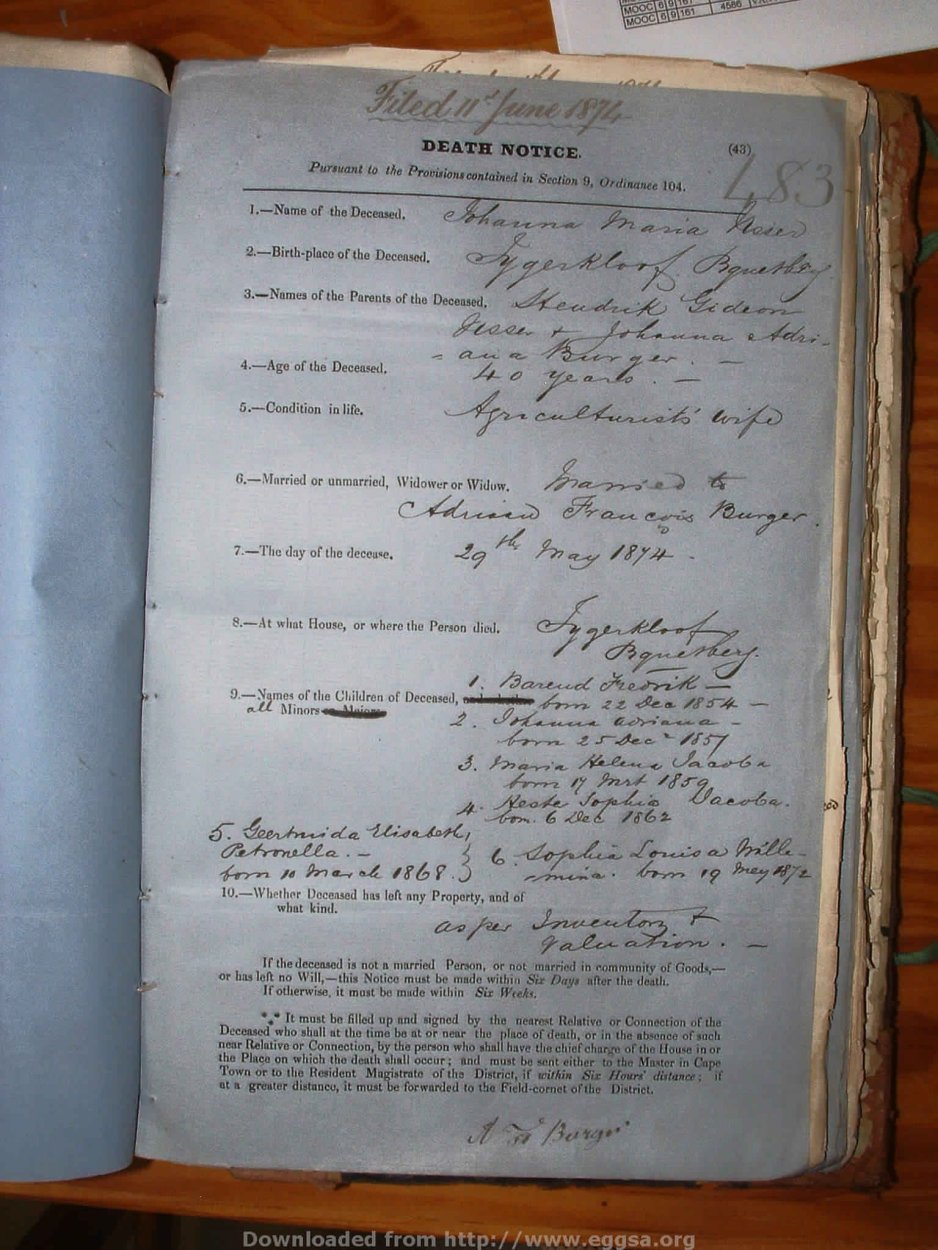 MOOC 6 9 161 4586
Filed 11th June 1874
DEATH NOTICE. (43)
Pursuant to the Provisions contained in Section 9, Ordinance 104. 483
1.—Name of the Deceased. Johanna Maria Visser
2.—Birth-place of the Deceased. Tygerkloof Pquetberg
3.—Names of the Parents of the Deceased. Hendrik Gideon
Visser + Johanna Adri-
= ana Burger. —
4.—Age of the Deceased. 40 years. —
5.—Condition in life. Agriculturist's wife
6.—Married or unmarried, Widower or Widow. Married to
Adriaan Francois Burger.
7.—The day of the decease. 29th May 1874 -
8.—At what House, or where the Person died. Tygerkloof
Pquetberg.
1. Barend Fredrik —
9.—Names of the Children of Deceased, born 22 Dec 1854 —
all Minors or Majors 2. Johanna Adriana -
born 25 Decr 1857
3. Maria Helena Jacoba
born 17 Mrt 1859
4. Heste Sophia Jacoba.
born. 6 Dec 1862
5. Geertruida Elisabeth,
Petronella. — 6. Sophia Louisa Wille-
born 10 March 1868. } mina. born 19 Mey 1872
10.—Whether Deceased has left any Property, and of
what kind.
as per Inventory +
Valuation. —
If the deceased is not a married Person, or not married in community of Goods,—
or has left no Will,—this Notice must be made within Six Days after the death.
If otherwise, it must be made within Six Weeks.
*** It must be filled up and signed by the nearest Relative or Connection of the
Deceased who shall at the time be at or near the place of death, or in the absence of such
near Relative or Connection, by the person who shall have the chief charge of the House in or
the Place on which the death shall occur; and must be sent either to the Master in Cape
Town or to the Resident Magistrate of the District, if within Six Hours' distance; if
at a greater distance, it must be forwarded to the Field-cornet of the District.
A Fs Burger
Downloaded from http://www.eggsa.org